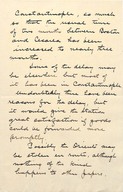 Constantinople, so much
so that the usual time
of two months between Boston
and Cesarea has been
increased to nearly three
months.
Some of the delay may
be elsewhere but most of
it has been in Constantinople
Undoubtedly there has been
reasons for the delay, but
it would give the Station
great satisfaction if goods
could be forwarded more
promptly.
Possibly the Orient may
be stolen en route, although
nothing of the kind
happens to other papers.